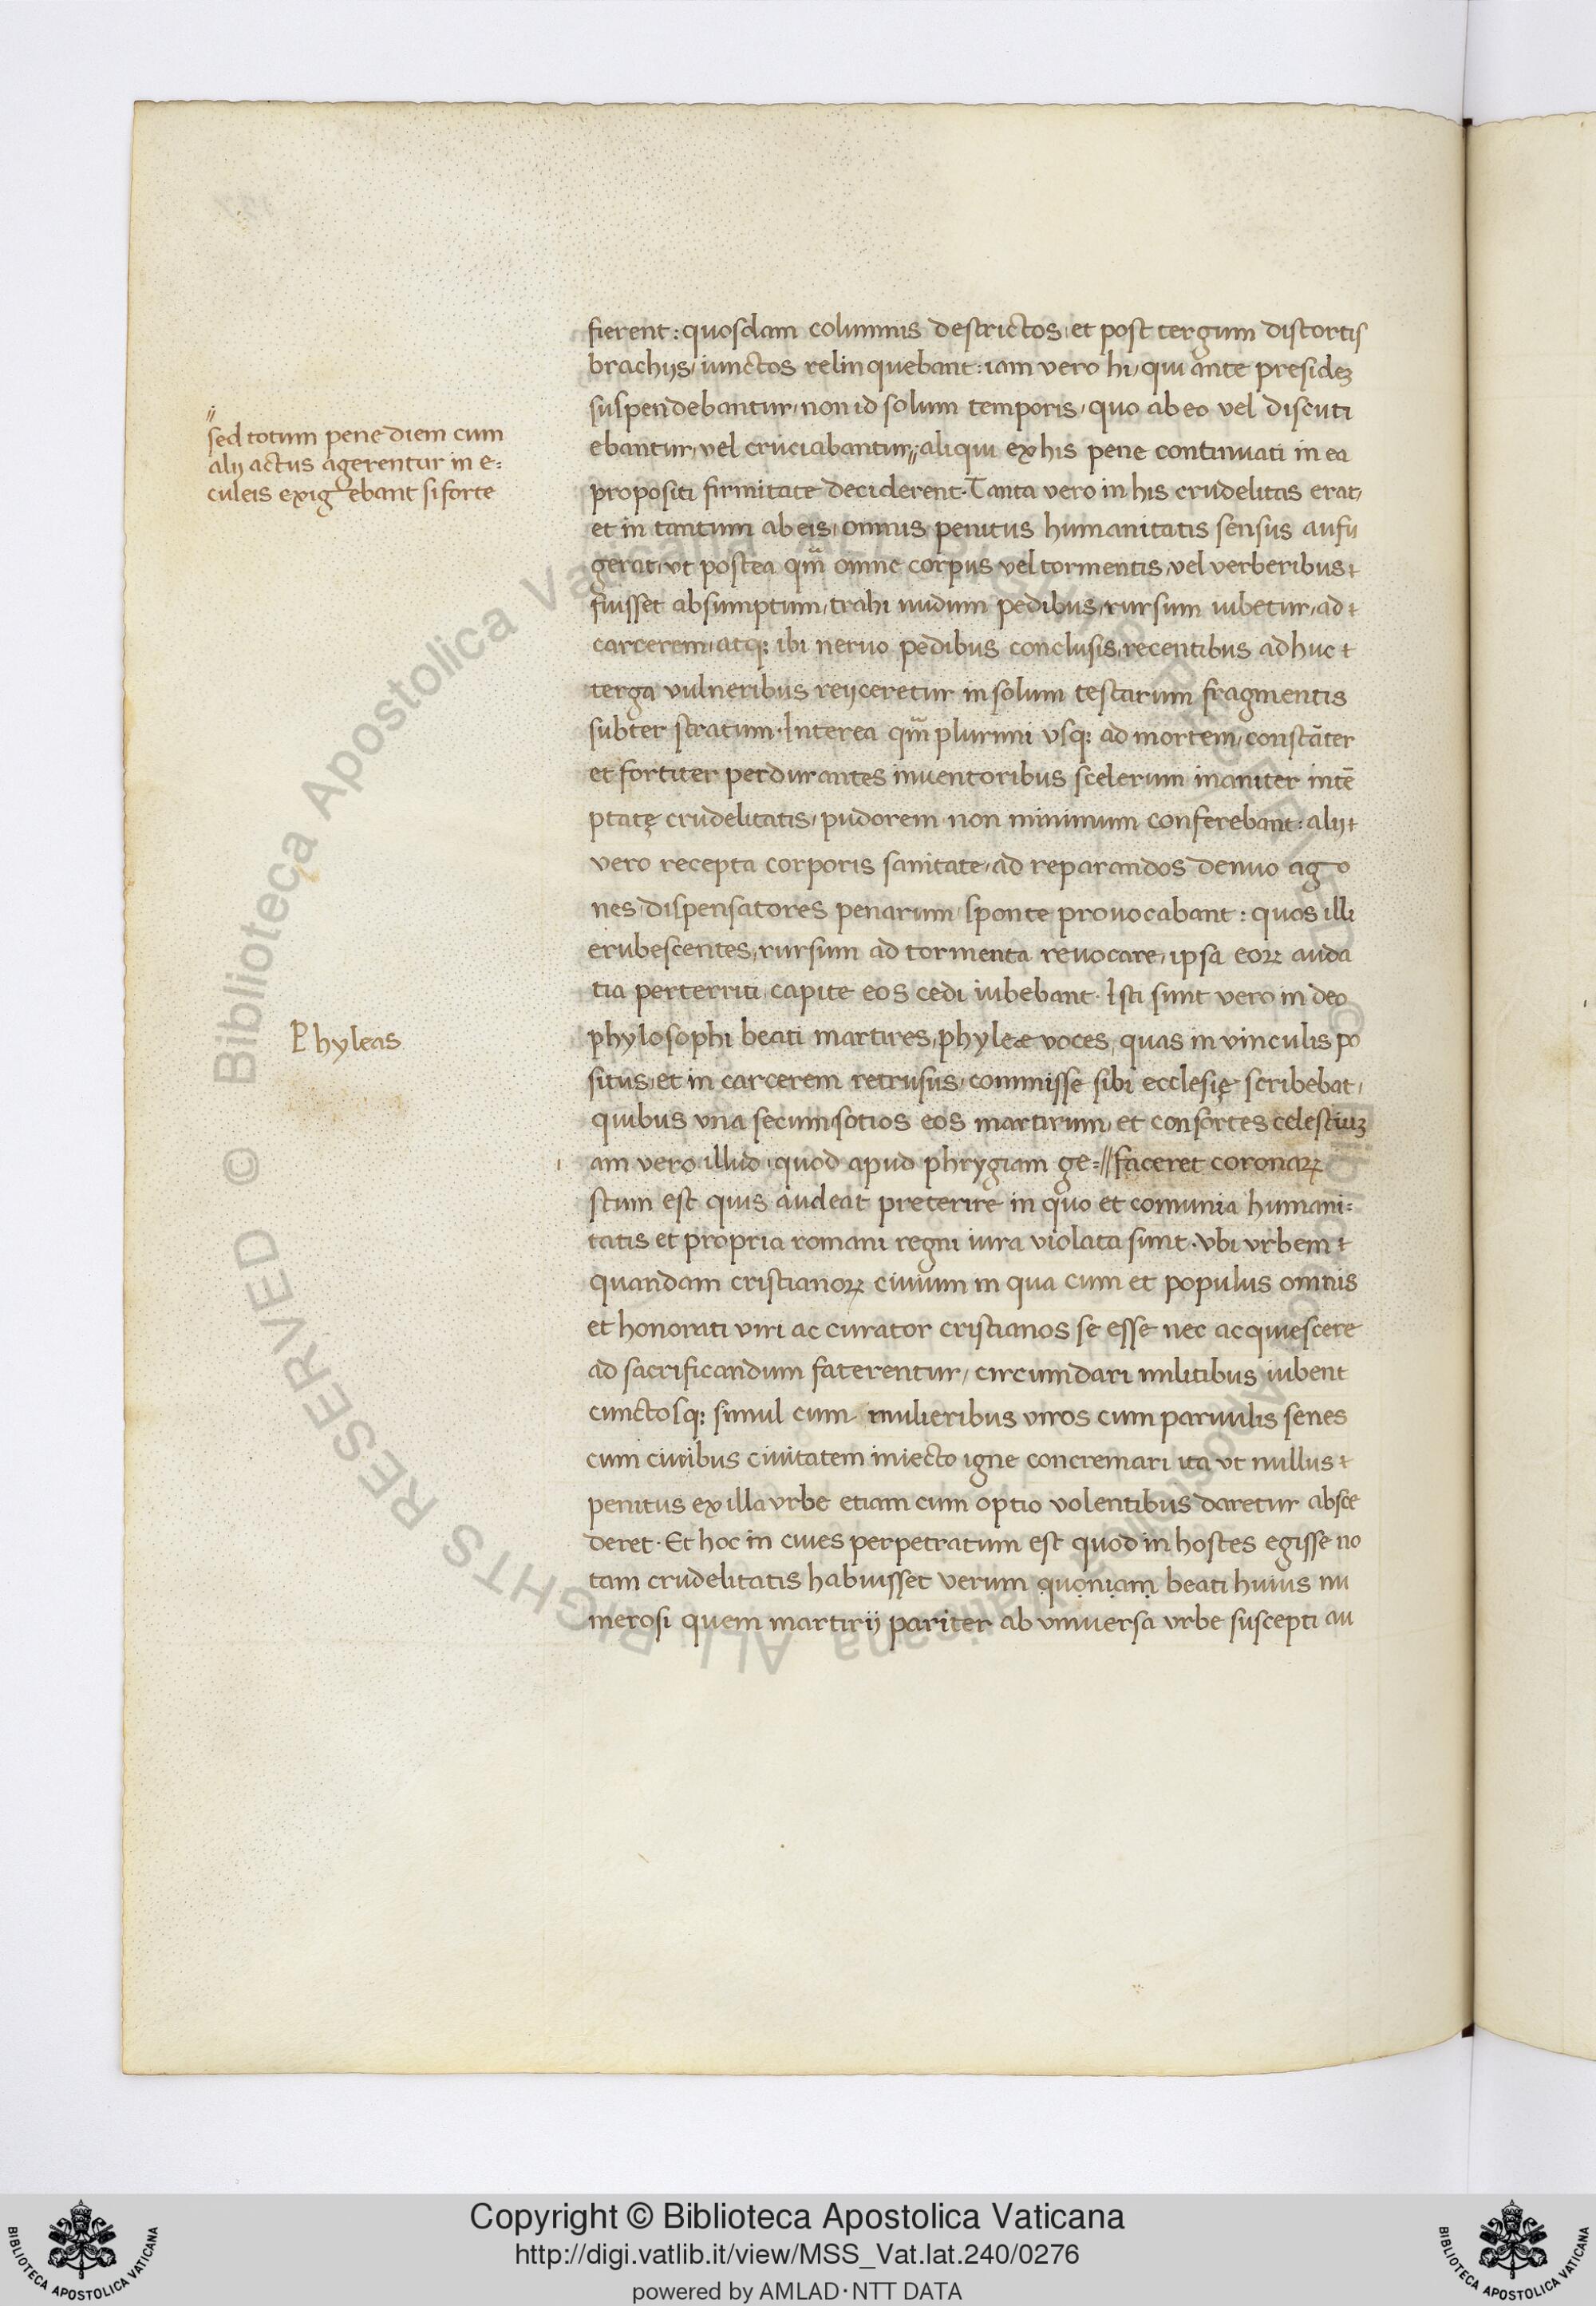 fierent: quosdam columnis destrictos, et post tergum distortis
brachijs, iunctos relinquebant: iam vero hi, qui ante presidez
suspendebantur, non id solum temporis, quo ab eo vel discuti
ebantur, vel cruciabantur,// aliqui ex his pene continuati in ea
propositi firmitate deciderent. Tanta vero in his crudelitas erat,
et in tantum ab eis, omnis penitus humanitatis sensus aufu
gerat, ut postea qm̃ omne corpus vel tormentis, vel verberibus
fuisset absumptum, trahi nudum pedibus, rursum iubetur, ad
carcerem, atq; ibi neruo pedibus conclusis, recentibus adhuc
terga vulneribus reijceretur in solum testarum fragmentis
subter stratum. Interea qm̃ plurimi vsq; ad mortem, constãter
et fortiter perdurantes inuentoribus scelerum inaniter intẽ
ptatę crudelitatis, pudorem non minimum conferebant: alij
vero recepta corporis sanitate, ad reparandos denuo ago
nes, dispensatores penarum, sponte prouocabant: quos illi
erubescentes, rursum ad tormenta reuocare, ipsa eoꝝ auda
tia perterriti, capite eos cedi iubebant. Isti sunt vero in deo
phylosophi beati martires, phyleæ voces, quas in vinculis po
situs, et in carcerem retrusus, commisse sibi ecclesię scribebat,
quibus vna secum, sotios eos martirum, et consortes celestiuz
am vero illud, quod apud phrygiam ge=//faceret coronaꝝ
stum est quis audeat preterire in quo et comunia humani=
tatis et propria romani regni iura violata sunt. vbi vrbem
quandam cristianoꝝ ciuium in qua cum et populus omnis
et honorati viri ac curator cristianos se esse nec acquiescere
ad sacrificandum faterentur, circumdari militibus iubent
cunctosq; simul cum mulieribus viros cum paruulis senes
cum ciuibus ciuitatem iniecto igne concremari ita vt nullus
penitus ex illa vrbe etiam cum optio volentibus daretur absce
deret. Et hoc in ciues perpetratum est quod in hostes egisse no
tam crudelitatis habuisset verum quoniam beati huius nu
merosi quem martirij pariter ab vniuersa vrbe suscepti au
//
sed totum pene diem cum
alij actus agerentur in e=
culeis exigebant si forte
Phyleas
i
© Biblioteca Apostolica Vaticana ALL RIGHTS RESERVED
Copyright © Biblioteca Apostolica Vaticana
http://digi.vatlib.it/view/MSS_Vat.lat.240/0276
powered by AMLAD·NTT DATA
BIBLIOTECA APOSTOLICA VATICANA
BIBLIOTECA APOSTOLICA VATICANA